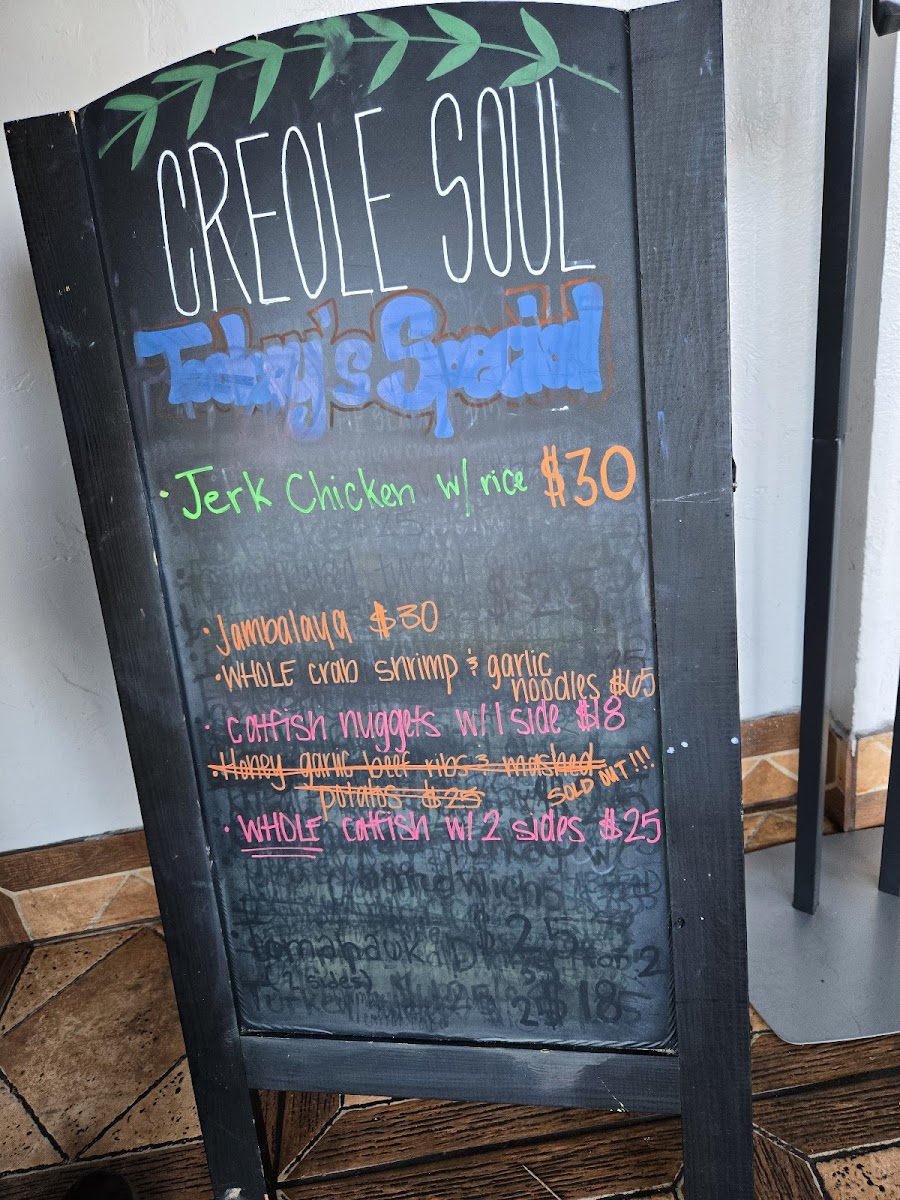 CREOLE SOUL
Today's Special
• Jerk Chicken w/ rice $30
• Jambalaya $30
• WHOLE crab shrimp & garlic
noodles $65
• catfish nuggets w/ 1 side $18
• Honey garlic beef ribs & mashed
potatos $25 SOLD OUT!!!
• WHOLE catfish w/ 2 sides $25
$25
tomahawk
(2 sides)
$18